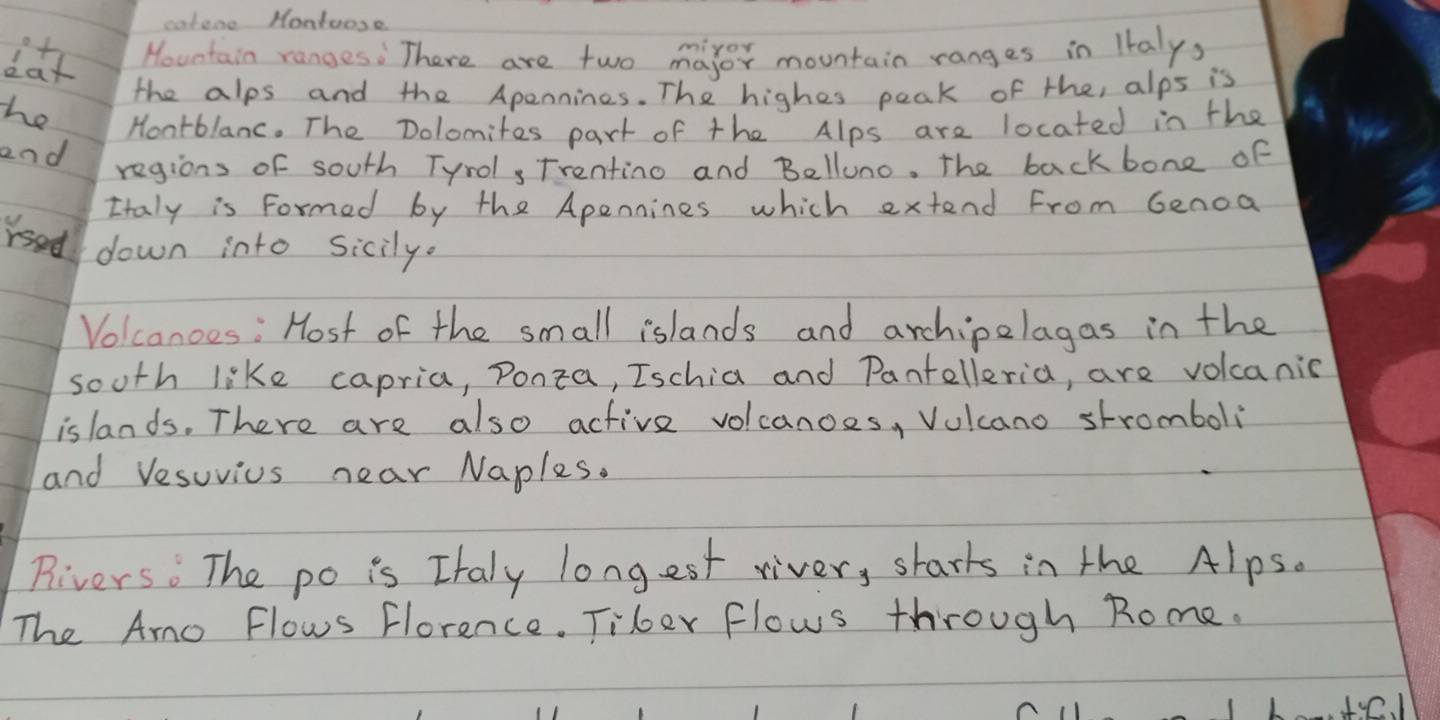 catene Montuose
it
Mountain ranges: There are two major mountain ranges in Italy,
miyor
eat
the alps and the Apennines. The highes peak of the, alps is
he
Montblanc. The Dolomites part of the Alps are located in the
and
regions of south Tyrol, Trentino and Belluno. The backbone of
Italy is Formed by the Apennines which extend From Genoa
rsed
down into Sicily.
Volcanoes: Most of the small islands and archipelagas in the
south like capria, Ponza, Ischia and Pantelleria, are volcanic
islands. There are also active volcanoes, Vulcano stromboli
and Vesuvius near Naples.
Rivers: The po is Italy longest river, starts in the Alps.
The Arno Flows Florence. Tiber flows through Rome.